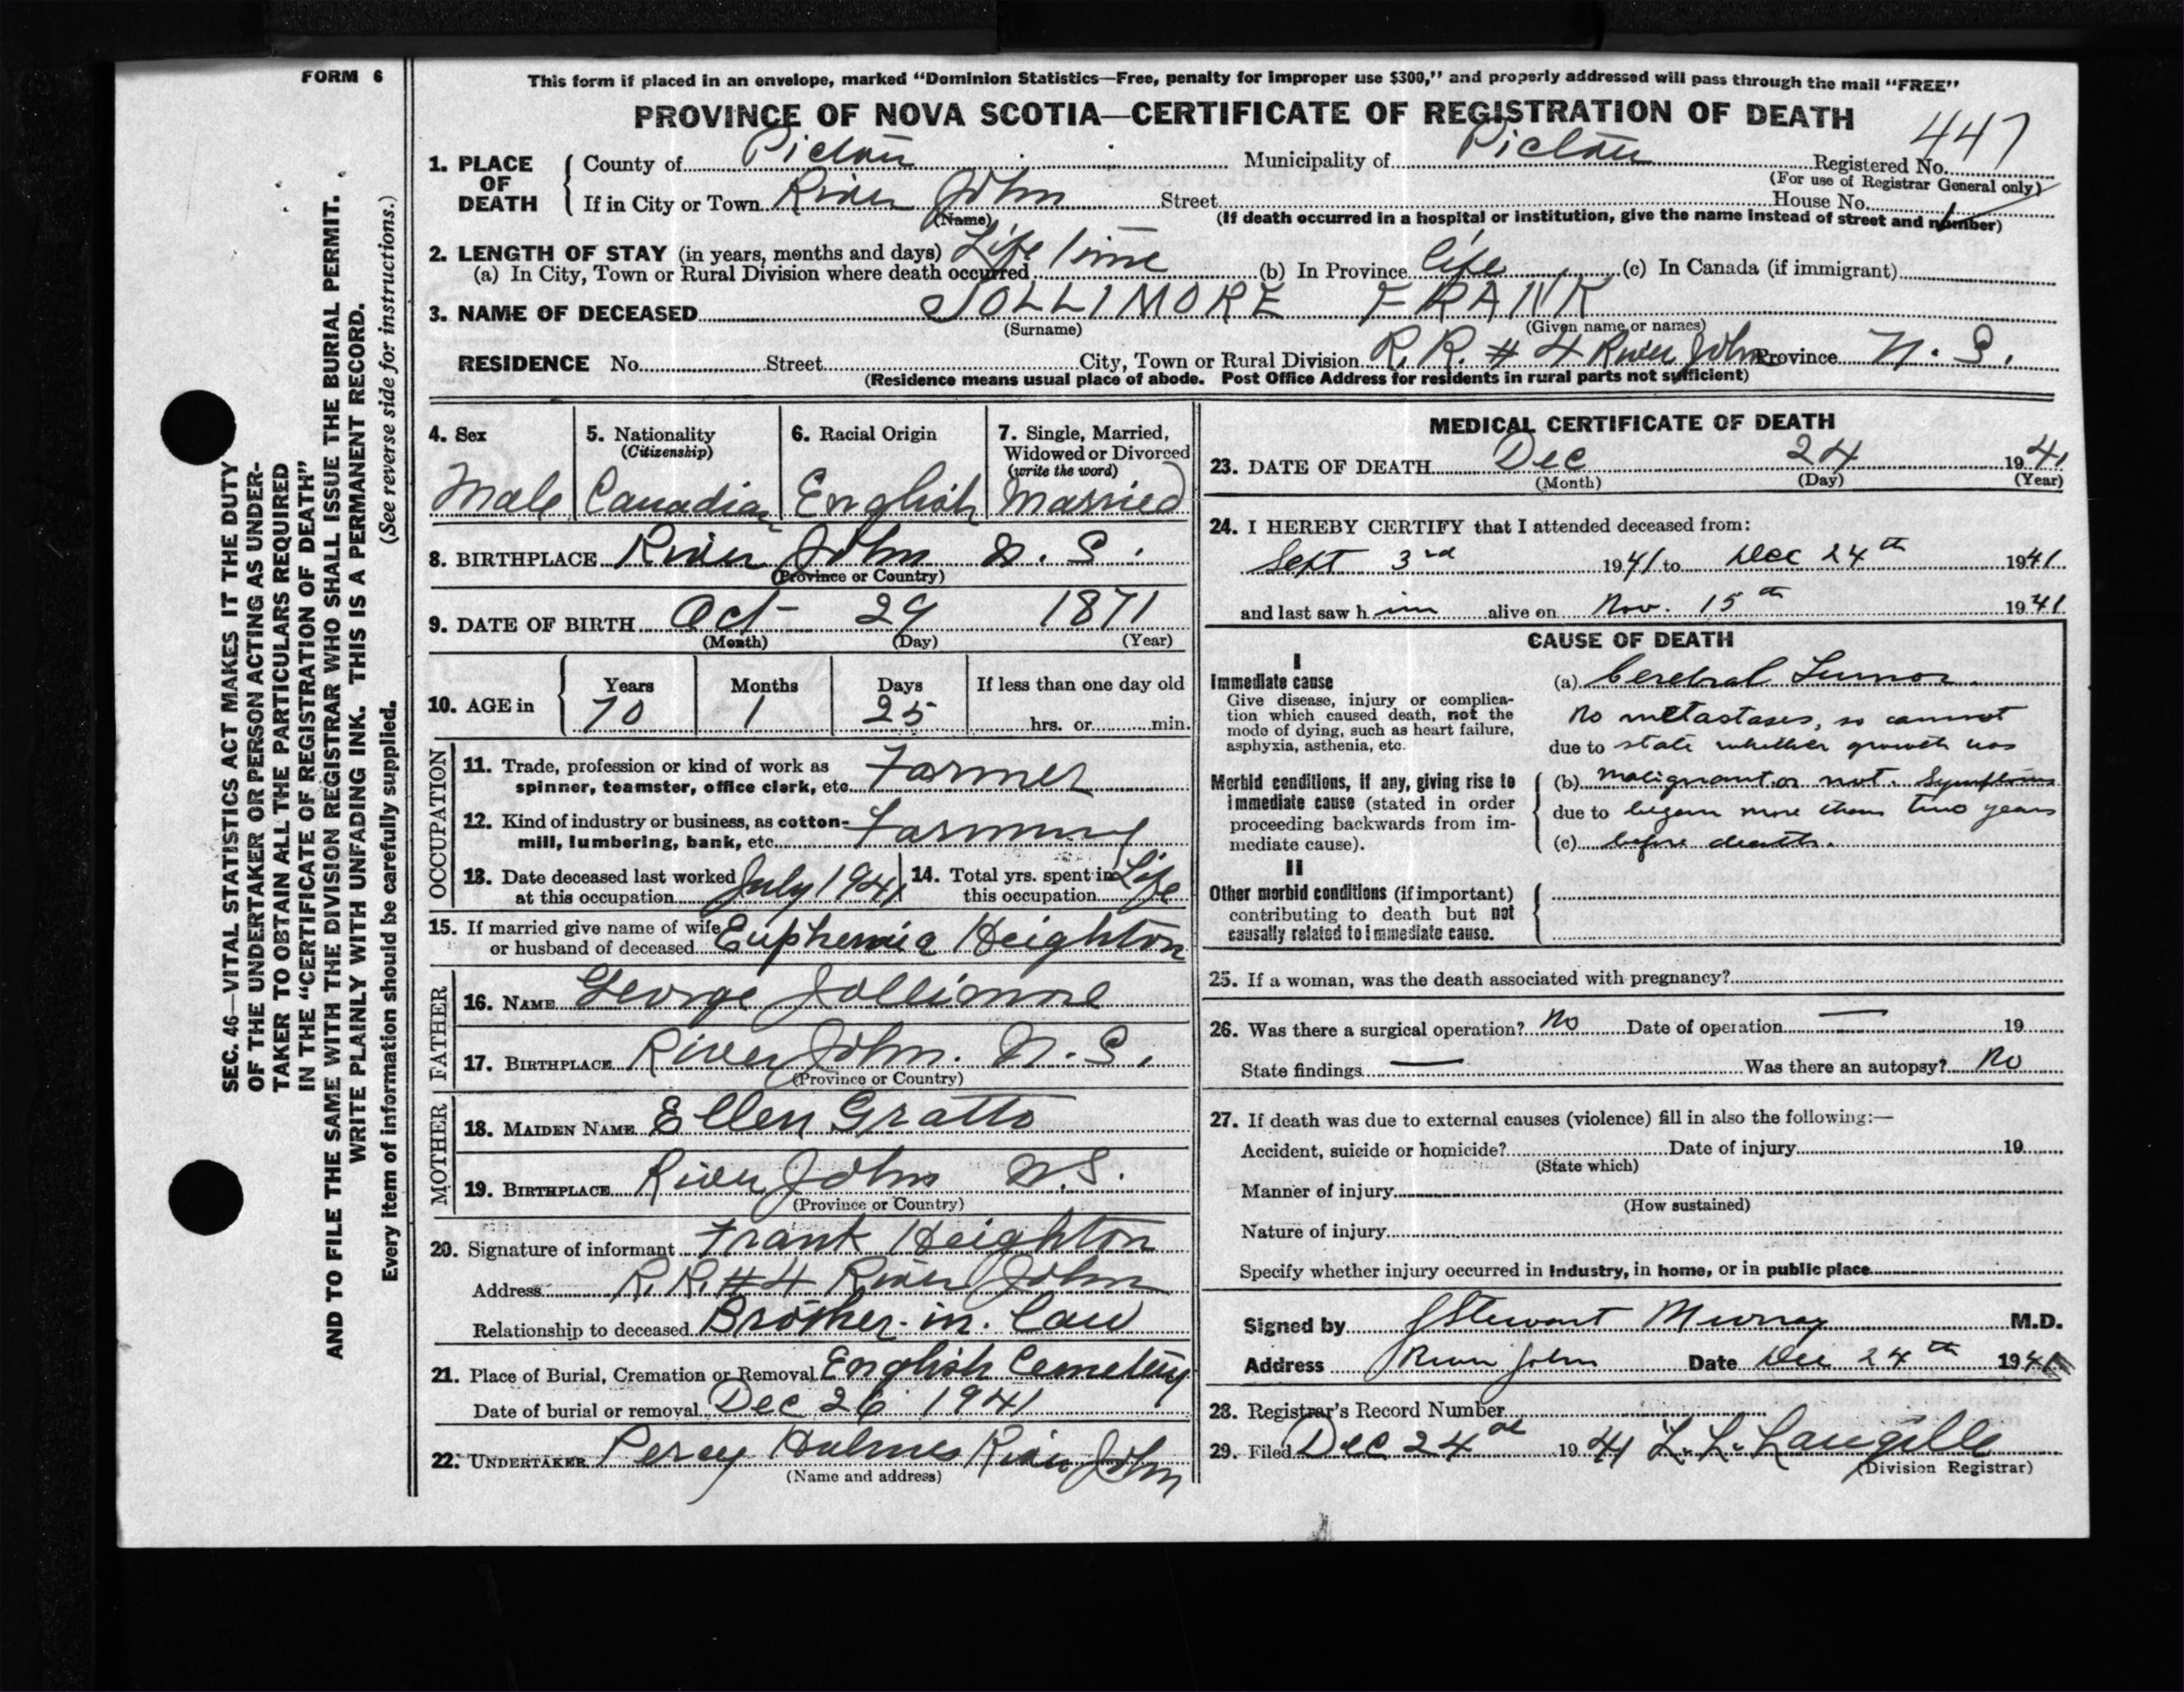 FORM 6
This form if placed in an envelope, marked "Dominion Statistics—Free, penalty for improper use $300," and properly addressed will pass through the mail "FREE"
PROVINCE OF NOVA SCOTIA—CERTIFICATE OF REGISTRATION OF DEATH
447
1. PLACE OF DEATH County of Pictou Municipality of Pictou Registered No.
(For use of Registrar General only)
If in City or Town River John Street House No.
(Name) (If death occurred in a hospital or institution, give the name instead of street and number)
2. LENGTH OF STAY (in years, months and days)
(a) In City, Town or Rural Division where death occurred Life time (b) In Province life (c) In Canada (if immigrant)
3. NAME OF DECEASED JOLLIMORE FRANK
(Surname) (Given name or names)
RESIDENCE No. Street City, Town or Rural Division R. R. # 4 River John Province N. S.
(Residence means usual place of abode. Post Office Address for residents in rural parts not sufficient)
4. Sex Male
5. Nationality (Citizenship) Canadian
6. Racial Origin English
7. Single, Married, Widowed or Divorced (write the word) Married
8. BIRTHPLACE River John N. S.
(Province or Country)
9. DATE OF BIRTH Oct 29 1871
(Month) (Day) (Year)
10. AGE in Years Months Days If less than one day old
70 1 25 hrs. or min.
OCCUPATION
11. Trade, profession or kind of work as
spinner, teamster, office clerk, etc. Farmer
12. Kind of industry or business, as cotton-
mill, lumbering, bank, etc. Farming
13. Date deceased last worked at this occupation July 1941 14. Total yrs. spent in this occupation Life
15. If married give name of wife
or husband of deceased Euphemia Heighton
FATHER
16. NAME George Jollimore
17. BIRTHPLACE River John. N. S.
(Province or Country)
MOTHER
18. MAIDEN NAME Ellen Gratto
19. BIRTHPLACE River John N.S.
(Province or Country)
20. Signature of informant Frank Heighton
Address R. R. # 4 River John
Relationship to deceased Brother-in-law
21. Place of Burial, Cremation or Removal English Cemetery
Date of burial or removal Dec 26 1941
22. UNDERTAKER Percy Holmes River John
(Name and address)
MEDICAL CERTIFICATE OF DEATH
23. DATE OF DEATH Dec 24 1941
(Month) (Day) (Year)
24. I HEREBY CERTIFY that I attended deceased from:
Sept 3rd 1941 to Dec 24th 1941
and last saw him alive on Nov. 15th 1941
CAUSE OF DEATH
I
Immediate cause
Give disease, injury or complica-
tion which caused death, not the
mode of dying, such as heart failure,
asphyxia, asthenia, etc.
(a) Cerebral Tumor.
No metastases, so cannot
due to state whether growth was
Morbid conditions, if any, giving rise to
immediate cause (stated in order
proceeding backwards from im-
mediate cause).
(b) malignant or not. Symptoms
due to began more than two years
(c) before death.
II
Other morbid conditions (if important)
contributing to death but not
causally related to immediate cause.
25. If a woman, was the death associated with pregnancy?
26. Was there a surgical operation? No Date of operation — 19
State findings — Was there an autopsy? No
27. If death was due to external causes (violence) fill in also the following:—
Accident, suicide or homicide? Date of injury 19
(State which)
Manner of injury
(How sustained)
Nature of injury
Specify whether injury occurred in industry, in home, or in public place
Signed by J Stewart Murray M.D.
Address River John Date Dec 24th 1941
28. Registrar's Record Number
29. Filed Dec 24 1941 L. L. Langille
(Division Registrar)
SEC. 46—VITAL STATISTICS ACT MAKES IT THE DUTY
OF THE UNDERTAKER OR PERSON ACTING AS UNDER-
TAKER TO OBTAIN ALL THE PARTICULARS REQUIRED
IN THE "CERTIFICATE OF REGISTRATION OF DEATH"
AND TO FILE THE SAME WITH THE DIVISION REGISTRAR WHO SHALL ISSUE THE BURIAL PERMIT.
WRITE PLAINLY WITH UNFADING INK. THIS IS A PERMANENT RECORD.
Every item of information should be carefully supplied. (See reverse side for instructions.)